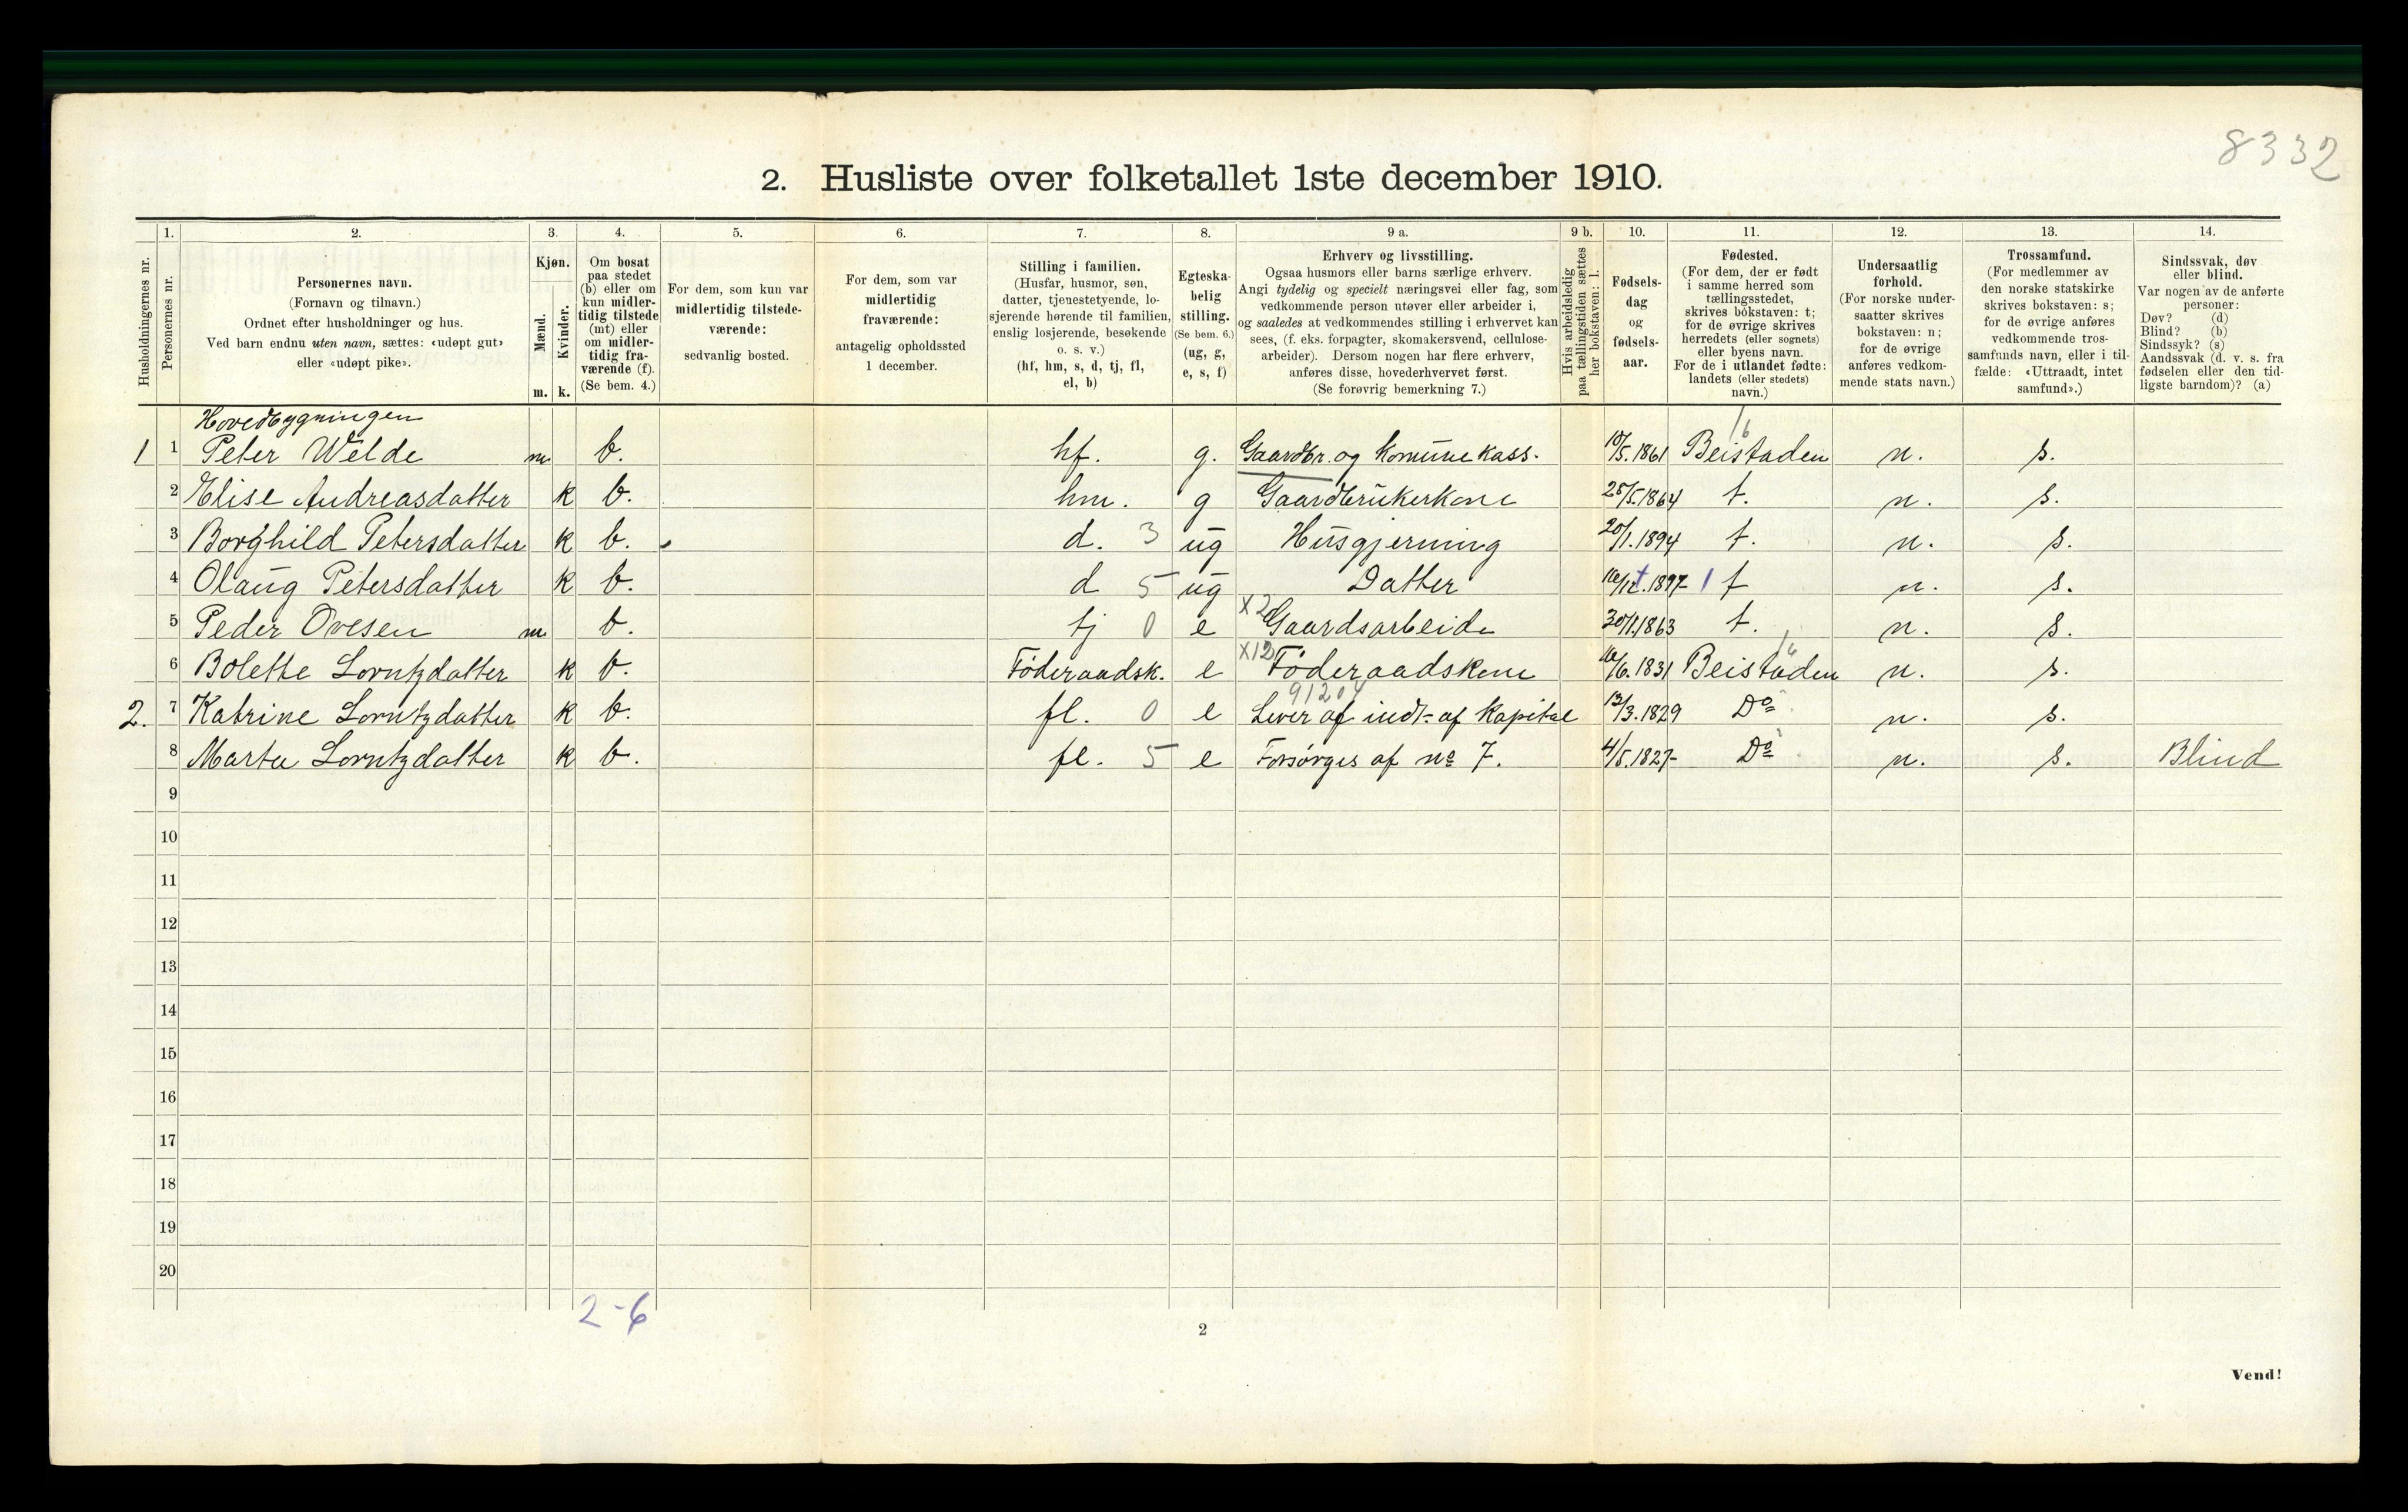 8332
2. Husliste over folketallet 1ste december 1910.
Husholdningernes nr.
1.
Personernes nr.
2.
Personernes navn.
(Fornavn og tilnavn.)
Ordnet efter husholdninger og hus.
Ved barn endnu uten navn, sættes: «udøpt gut»
eller «udøpt pike».
3.
Kjøn.
Mænd.
Kvinder.
m. k.
4.
Om bosat
paa stedet
(b) eller om
kun midler-
tidig tilstede
(mt) eller
om midler-
tidig fra-
værende (f).
(Se bem. 4.)
5.
For dem, som kun var
midlertidig tilstede-
værende:
sedvanlig bosted.
6.
For dem, som var
midlertidig
fraværende:
antagelig opholdssted
1 december.
7.
Stilling i familien.
(Husfar, husmor, søn,
datter, tjenestetyende, lo-
sjerende hørende til familien,
enslig losjerende, besøkende
o. s. v.)
(hf, hm, s, d, tj, fl,
el, b)
8.
Egteska-
belig
stilling.
(Se bem. 6.)
(ug, g,
e, s, f)
9 a.
Erhverv og livsstilling.
Ogsaa husmors eller barns særlige erhverv.
Angi tydelig og specielt næringsvei eller fag, som
vedkommende person utøver eller arbeider i,
og saaledes at vedkommendes stilling i erhvervet kan
sees, (f. eks. forpagter, skomakersvend, cellulose-
arbeider). Dersom nogen har flere erhverv,
anføres disse, hovederhvervet først.
(Se forøvrig bemerkning 7.)
9 b.
Hvis arbeidsledig
paa tællingstiden sættes
her bokstaven: l.
10.
Fødsels-
dag
og
fødsels-
aar.
11.
Fødested.
(For dem, der er født
i samme herred som
tællingsstedet,
skrives bokstaven: t;
for de øvrige skrives
herredets (eller sognets)
eller byens navn.
For de i utlandet fødte:
landets (eller stedets)
navn.)
12.
Undersaatlig
forhold.
(For norske under-
saatter skrives
bokstaven: n;
for de øvrige
anføres vedkom-
mende stats navn.)
13.
Trossamfund.
(For medlemmer av
den norske statskirke
skrives bokstaven: s;
for de øvrige anføres
vedkommende tros-
samfunds navn, eller i til-
fælde: «Uttraadt, intet
samfund».)
14.
Sindssvak, døv
eller blind.
Var nogen av de anførte
personer:
Døv? (d)
Blind? (b)
Sindssyk? (s)
Aandssvak (d. v. s. fra
fødselen eller den tid-
ligste barndom)? (a)
Hovedbygningen
1 1 Peter Welde m b. hf. g. Gaardbr. og Komunekass. 10/5.1861 Beistaden n. s.
2 Elise Andreasdatter k b. hm. g Gaardbrukerkone 25/5.1864 t. n. s.
3 Borghild Petersdatter k b. d. 3 ug Husgjerning 20/1.1894 t. n. s.
4 Olaug Petersdatter k b. d 5 ug Datter 1897 1 t n. s.
5 Peder Ovesen m b. tj 0 e X2 Gaardsarbeide 1863 t. n. s.
6 Bolette Lorntzdatter k b. Føderaadsk. e X12 Føderaadskone 16/6.1831 Beistaden n. s.
91204
2. 7 Katrine Lorntzdatter k b. fl. 0 e Lever af indt. af Kapital 13/3.1829 Do n. s.
8 Marta Lorntzdatter k b. fl. 5 e Forsørges af no 7. 4/5.1827 Do n. s. Blind
9
10
11
12
13
14
15
16
17
18
19
20
2-6
2
Vend!